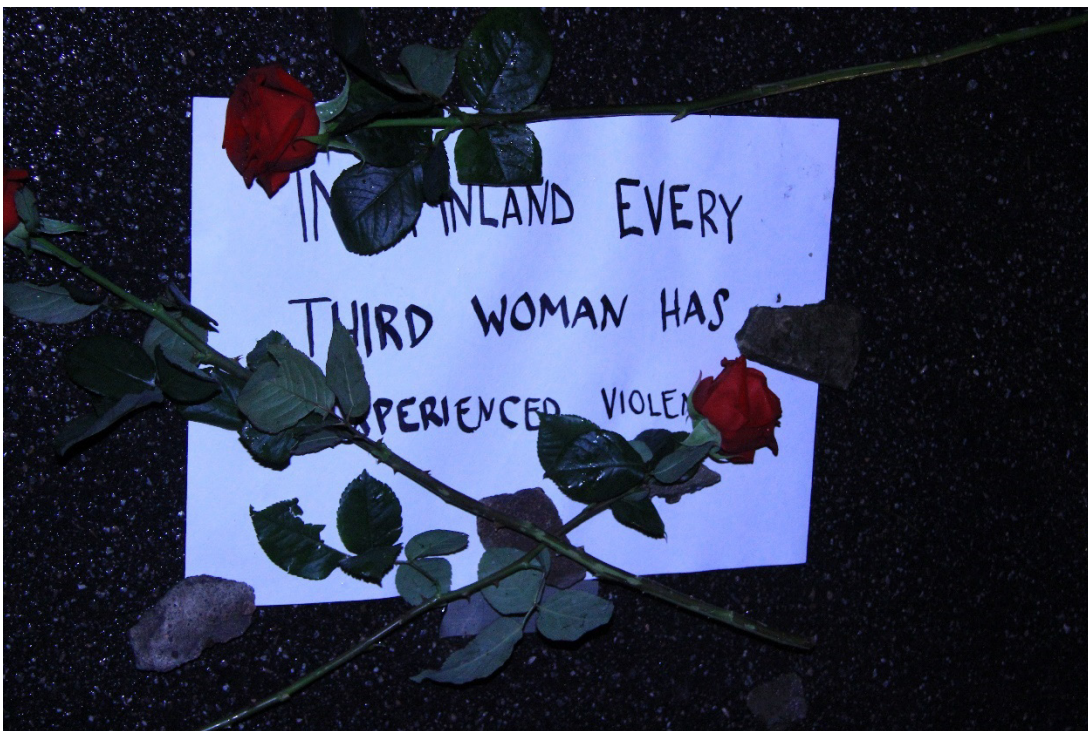 IN FINLAND EVERY
THIRD WOMAN HAS
EXPERIENCED VIOLENCE